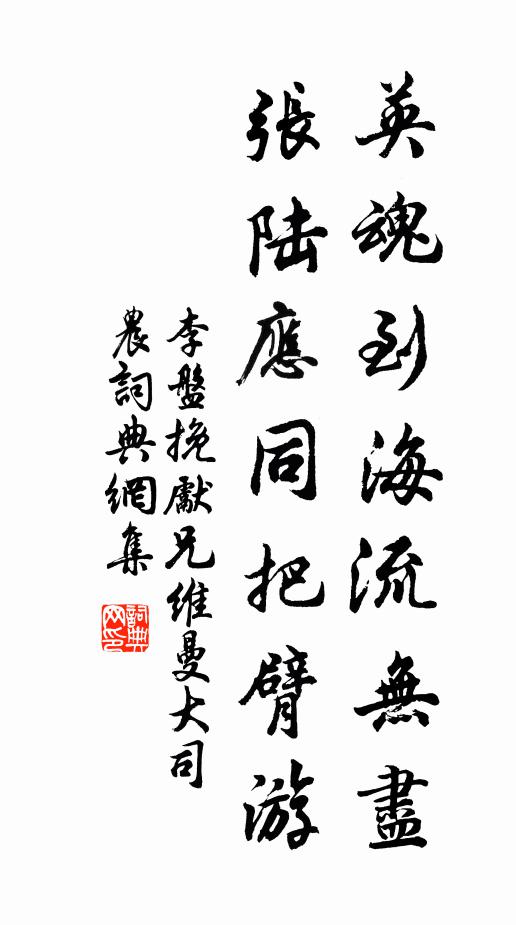 英魂到海流無盡
張陆應同把臂游
李盤挽獻兄維曼大司
農詞典網集
詞典網印